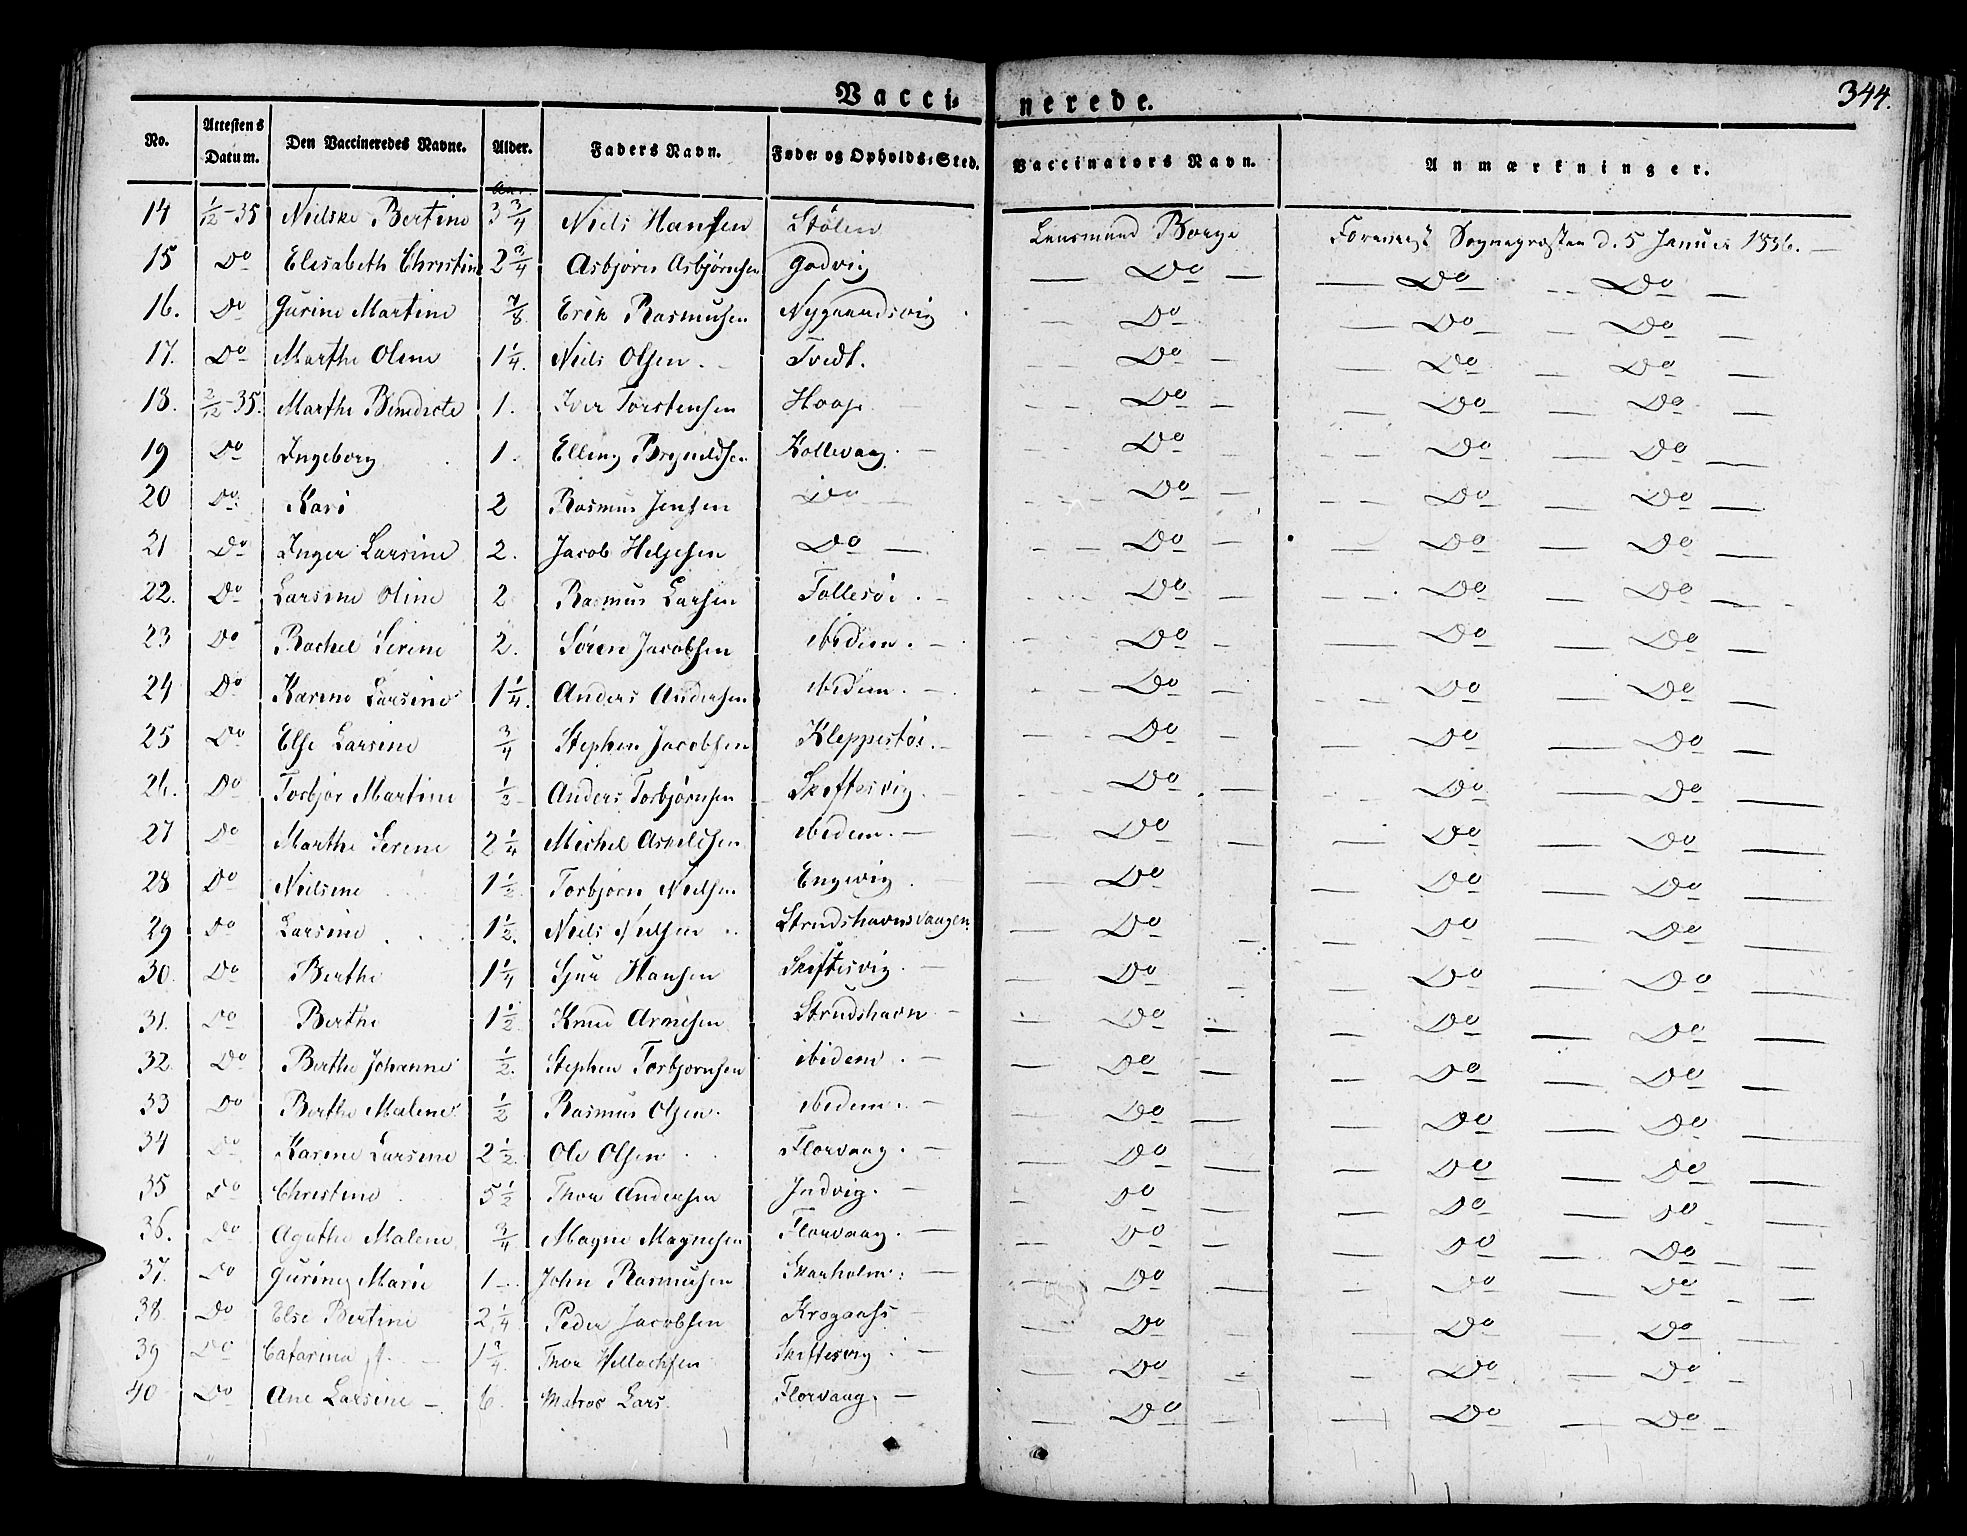 Vacci- nerede. 344.
No. | Attestens Datum. | Den Vaccineredes Navne. | Alder. | Faders Navn. | Føde- og Opholds-Sted. | Vaccinators Navn. | Anmærkninger.
Aar.
14 1/12-35 Nielske Bertine 3 3/4 Niels Hansen Stölen Lensmand Borge Foreviist Sogneprosten d. 5 Januar 1836.
15 Do Elisabeth Christine 2 3/4 Asbjörn Asbjörnsen Godvig Do Do Do
16. Do Gurine Martine 7/8 Erik Rasmussen Nygaardsvig Do Do Do
17. Do Marthe Oline 1 1/4. Niels Olsen Tvedt. Do Do Do
18. 2/12-35. Marthe Bendicte 1. Iver Torstensen Hoop Do Do Do
19 Do Ingeborg 1. Elling Brynildsen Kollevaag. Do Do Do
20 Do Kari 2 Rasmus Jensen Do Do Do Do
21 Do Inger Larsine 2. Jacob Helgesen Do Do Do Do
22. Do Larsine Oline 2 Rasmus Larsen Follesöi. Do Do Do
23 Do Rachel Serine 2. Sören Jacobsen ibidem. Do Do Do
24 Do Karine Larsine 1 1/4. Anders Andersen ibidem. Do Do Do
25 Do Else Larsine 3/4 Stephen Jacobsen Kleppestöi. Do Do Do
26. Do Torbjör Martine 1/2 Anders Torbjörnsen Skiftesvig. Do Do Do
27 Do Marthe Serine 2 1/4 Michel Askeldsen ibidem. Do Do Do
28 Do Nielsine 1 1/2 Torbjörn Nielsen Engevig Do Do Do
29 Do Larsine 1 1/2. Niels Nielsen Strudshavnsvaagen. Do Do Do
30. Do Berthe 1 1/4 Sjur Hansen Skiftesvig. Do Do Do
31. Do Berthe 1 1/2 Knud Arnesen Strudshavn Do Do Do
32. Do Berthe Johanne 1/2. Stephen Torbjörnsen ibidem. Do Do Do
33 Do Berthe Malene 1/2 Rasmus Olsen. ibidem. Do Do Do
34 Do Karine Larsine 2 1/2. Ole Olsen Florvaag. Do Do Do
35 Do Christine 5 1/2 Thore Andersen Indvig. Do Do Do
36. Do Agathe Malene 3/4 Magne Magnesen Florvaag. Do Do Do
37. Do Gurine Marie 1 John Rasmusen Skarholm. Do Do Do
38. Do Else Bertine 2 1/4 Peder Jacobsen Krogaas Do Do Do
39 Do Catarina 1 3/4. Thor Skiftesvig Do Do Do
40 Do Ane Larsine 6. Matros Lars Florvaag. Do Do Do